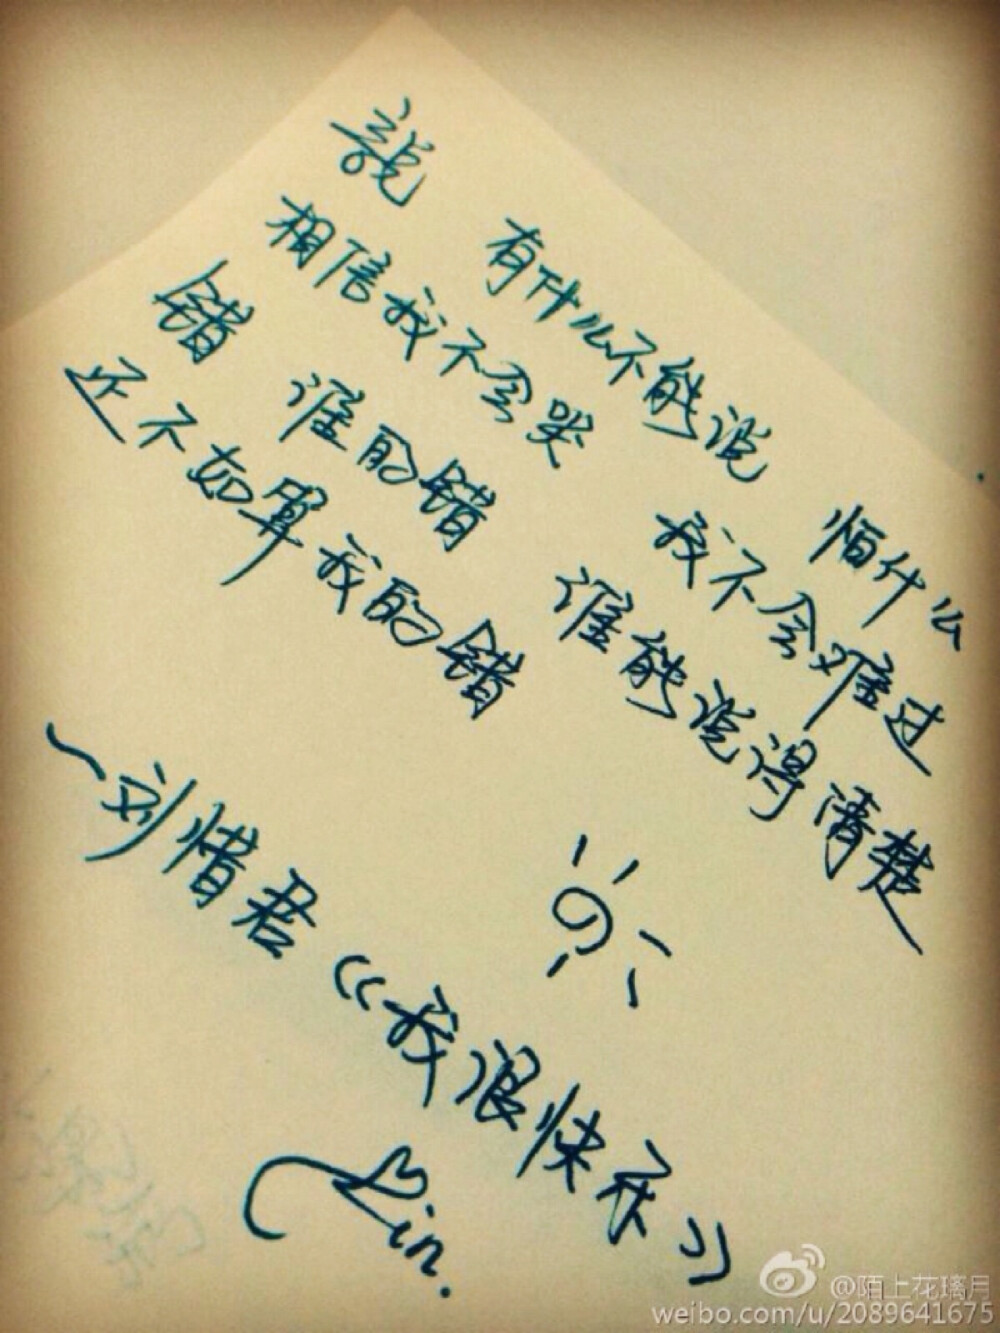 說 有什么不能说 怕什么
相信我不会哭 我不会难过
错 谁的错 谁能说得清楚
还不如算我的错
~刘惜君《我很快乐》
Lin.
@陌上花璃月
weibo.com/u/2089641675